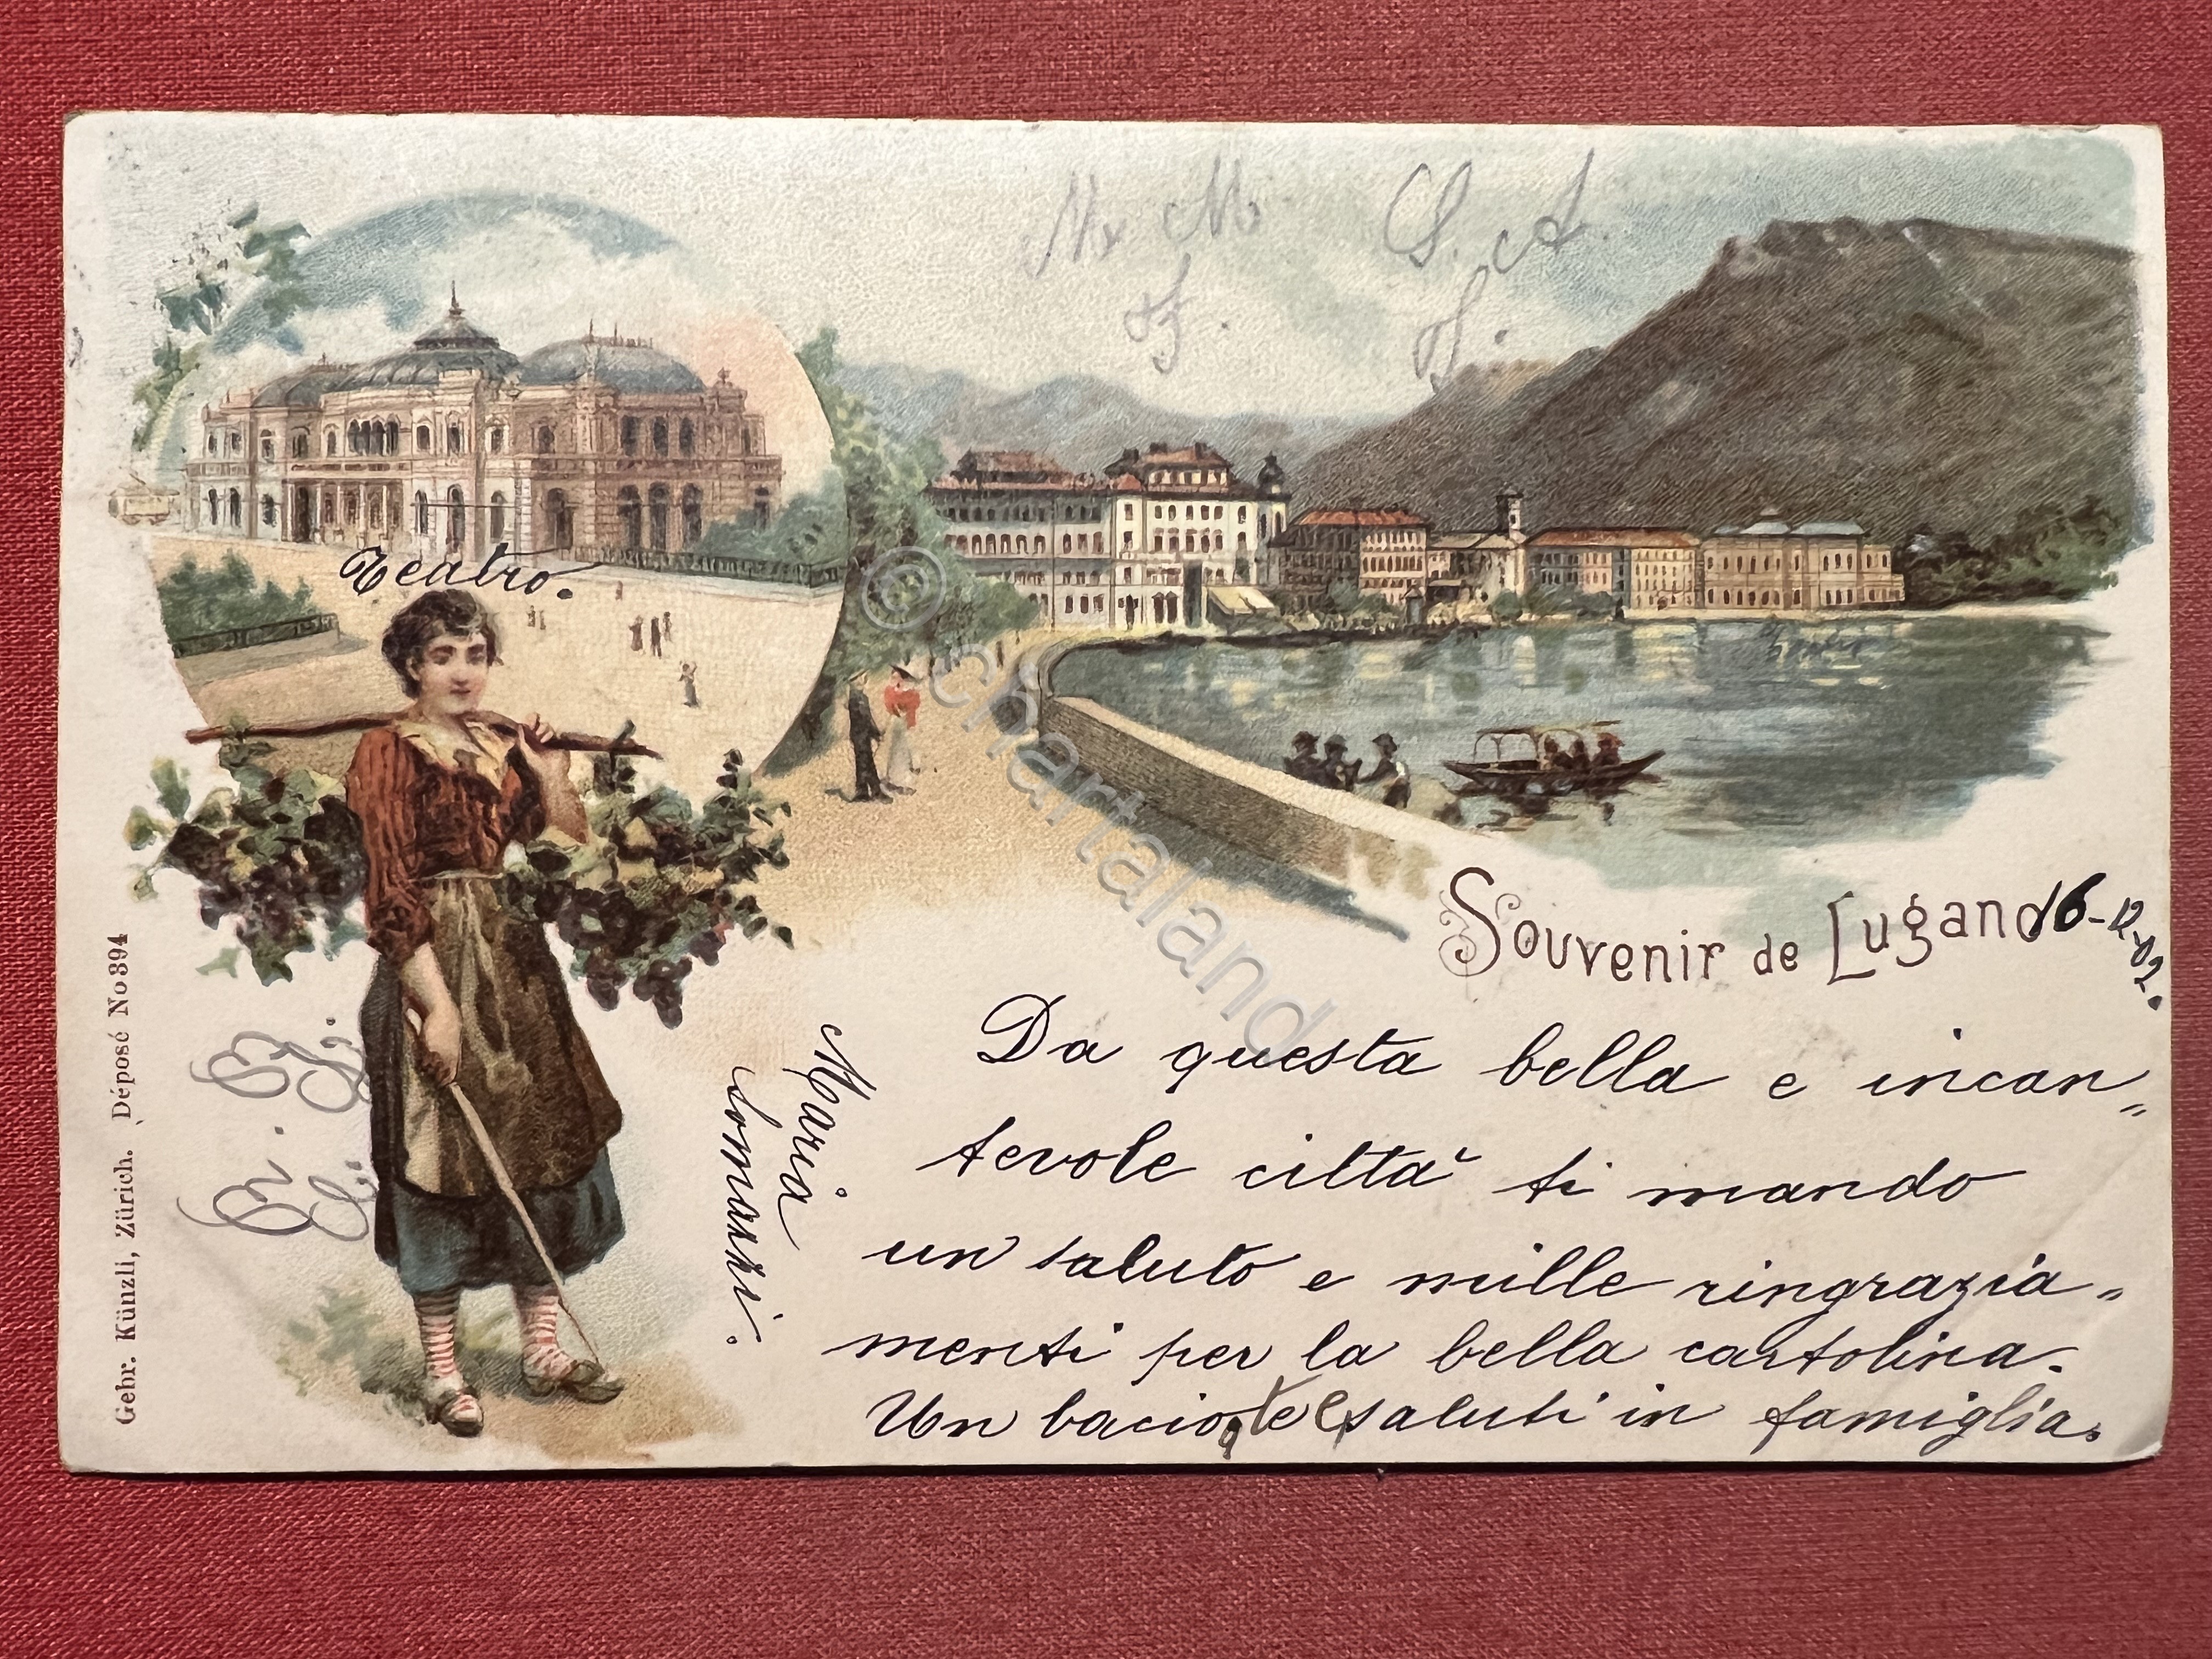 Teatro.
Souvenir de Lugano
16-12-02.
Da questa bella e incan„
tevole città ti mando
un saluto e mille ringrazia„
menti per la bella cartolina.
Un bacio a te e saluti in famiglia.
Maria
Somazzi.
Gebr. Künzli, Zürich. Déposé No 394
© chartaland